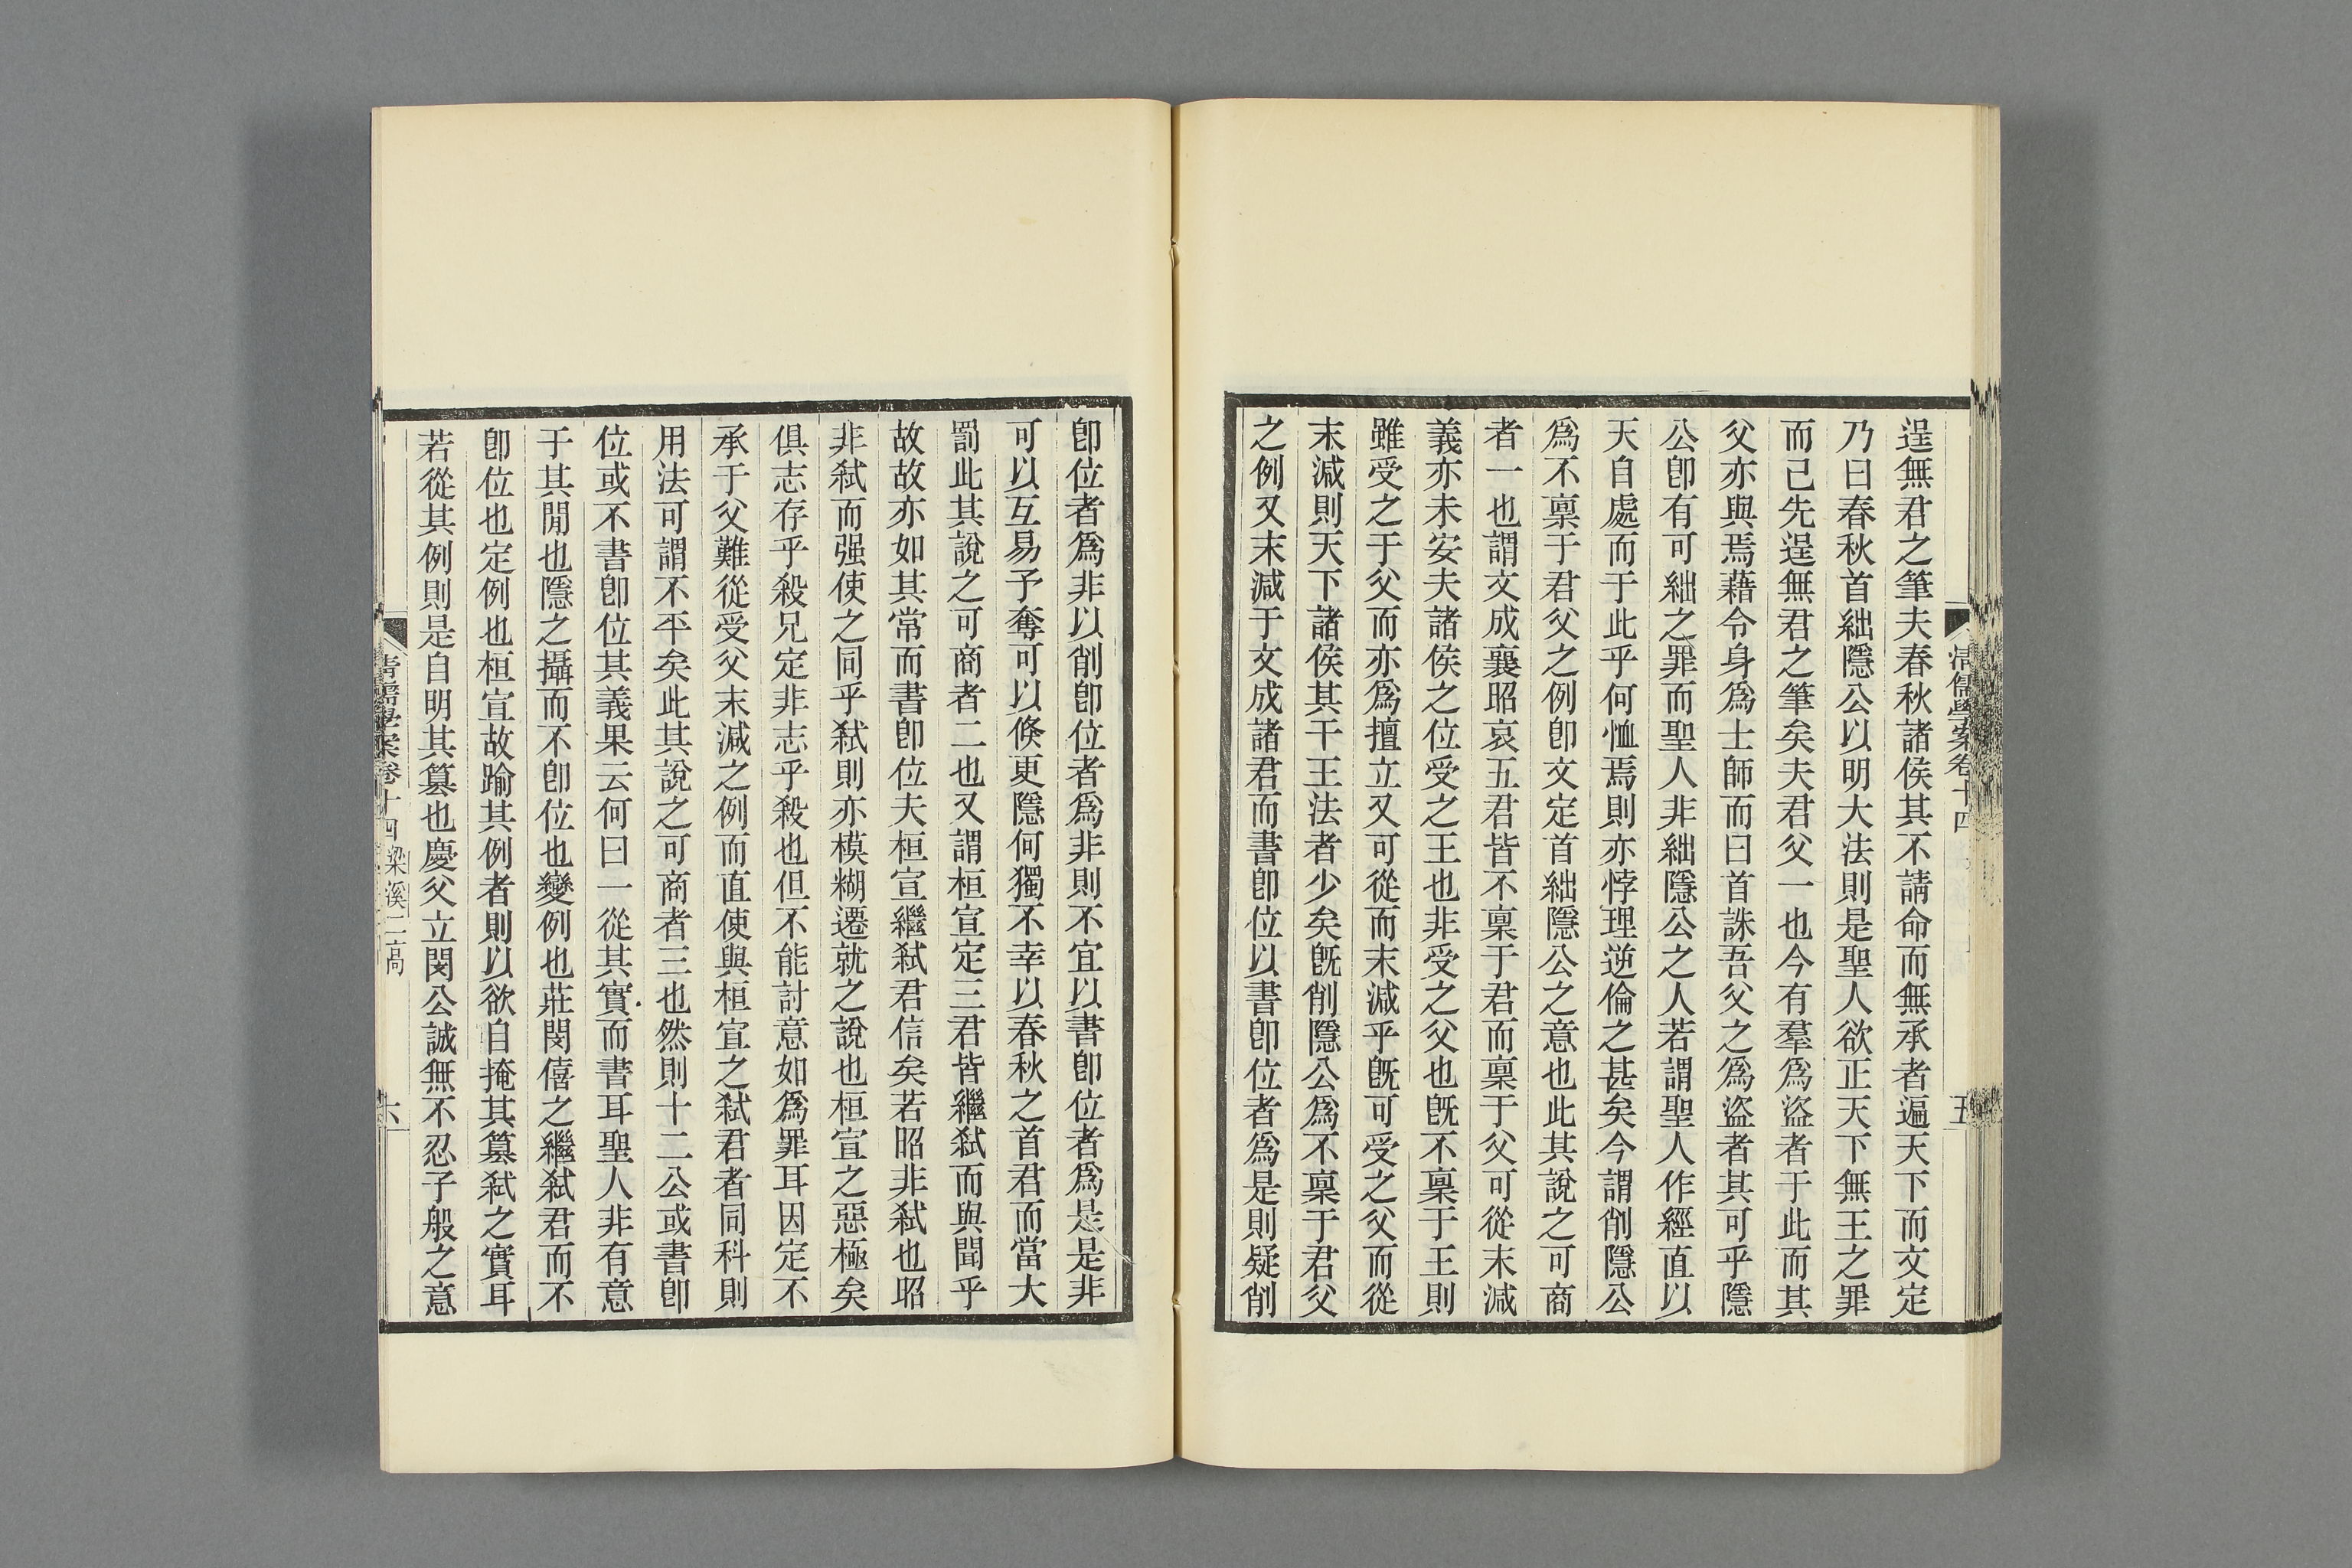 清儒學案卷十四
五
逞無君之筆夫春秋諸侯其不請命而無承者遍天下而文定
乃曰春秋首絀隱公以明大法則是聖人欲正天下無王之罪
而己先逞無君之筆矣夫君父一也今有羣爲盜者于此而其
父亦與焉藉令身爲士師而曰首誅吾父之爲盜者其可乎隱
公卽有可絀之罪而聖人非絀隱公之人若謂聖人作經直以
天自處而于此乎何恤焉則亦悖理逆倫之甚矣今謂削隱公
爲不稟于君父之例卽文定首絀隱公之意也此其說之可商
者一也謂文成襄昭哀五君皆不稟于君而稟于父可從末減
義亦未安夫諸侯之位受之王也非受之父也旣不稟于王則
雖受之于父而亦爲擅立又可從而末減乎旣可受之父而從
末減則天下諸侯其干王法者少矣旣削隱公爲不稟于君父
之例又末減于文成諸君而書卽位以書卽位者爲是則疑削
卽位者爲非以削卽位者爲非則不宜以書卽位者爲是是非
可以互易予奪可以倏更隱何獨不幸以春秋之首君而當大
罰此其說之可商者二也又謂桓宣定三君皆繼弒而與聞乎
故故亦如其常而書卽位夫桓宣繼弒君信矣若昭非弒也昭
非弒而强使之同乎弒則亦模糊遷就之說也桓宣之惡極矣
俱志存乎殺兄定非志乎殺也但不能討意如爲罪耳因定不
承于父難從受父末減之例而直使與桓宣之弒君者同科則
用法可謂不平矣此其說之可商者三也然則十二公或書卽
位或不書卽位其義果云何曰一從其實而書耳聖人非有意
于其閒也隱之攝而不卽位也變例也莊閔僖之繼弒君而不
卽位也定例也桓宣故踰其例者則以欲自掩其篡弒之實耳
若從其例則是自明其篡也慶父立閔公誠無不忍子般之意
清儒學案卷十四 梁溪二高
六